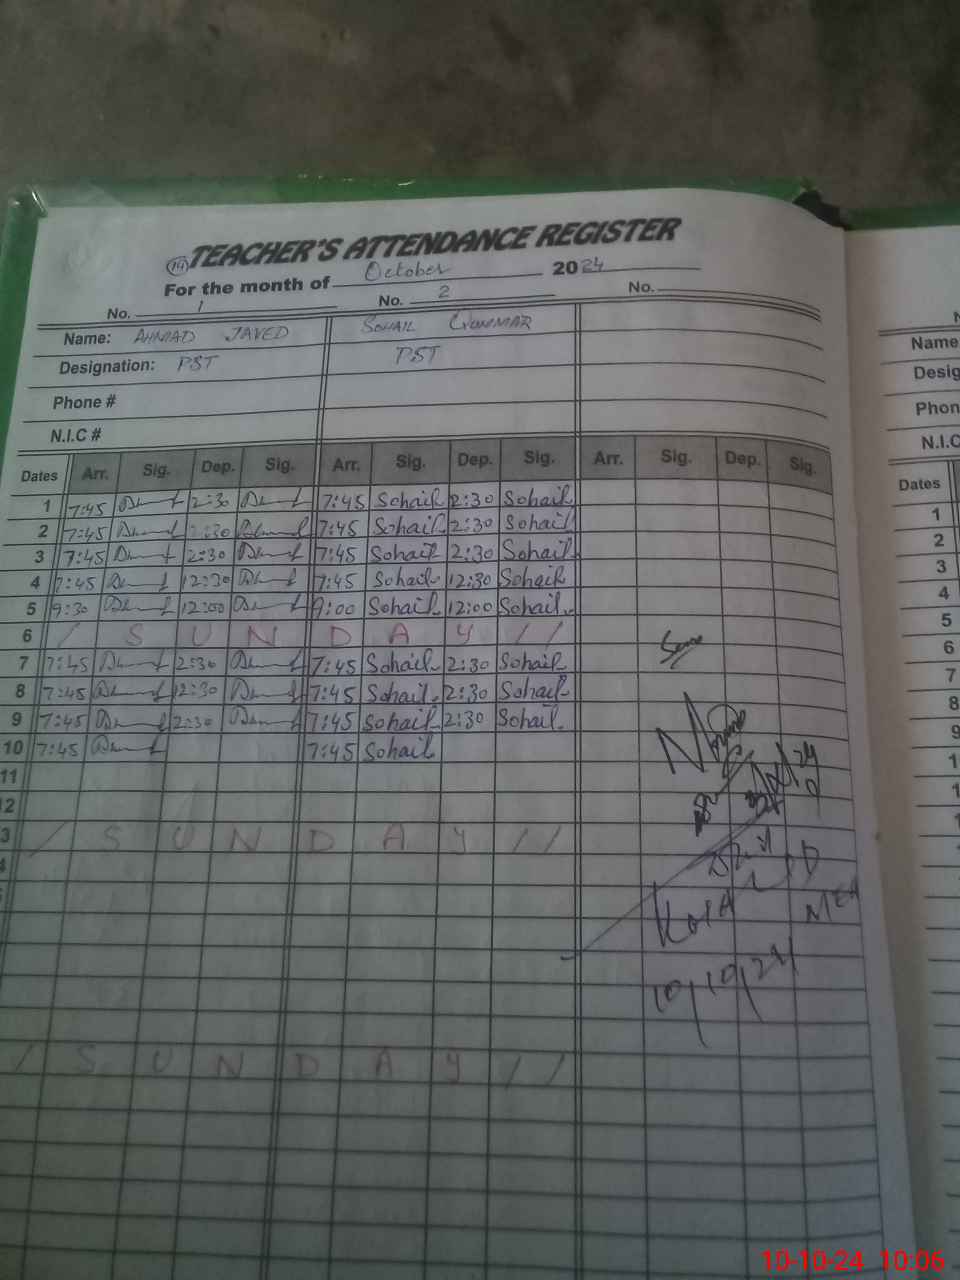 14 TEACHER'S ATTENDANCE REGISTER
For the month of October 2024
No. 1 No. 2 No.
Name: AHMAD JAVED SOHAIL
Designation: PST PST
Phone #
N.I.C #
Dates Arr. Sig. Dep. Sig. Arr. Sig. Dep. Sig. Arr. Sig. Dep. Sig.
1 7:45 2:30 7:45 Sohail 2:30 Sohail
2 7:45 2:30 7:45 Sohail 2:30 Sohail
3 7:45 2:30 7:45 Sohail 2:30 Sohail
4 7:45 12:30 7:45 Sohail 12:30 Sohail
5 9:30 12:00 9:00 Sohail 12:00 Sohail
6 / S U N D A Y / /
7 7:45 2:30 7:45 Sohail 2:30 Sohail
8 7:45 12:30 7:45 Sohail 2:30 Sohail
9 7:45 2:30 7:45 Sohail 2:30 Sohail
10 7:45 7:45 Sohail
11
12
3 / S U N D A Y / /
4
MEA
10/10/24
/ S U N D A Y / /
Name
Desig
Phon
N.I.C
Dates
1
2
3
4
5
6
7
8
9
1
10-10-24 10:06